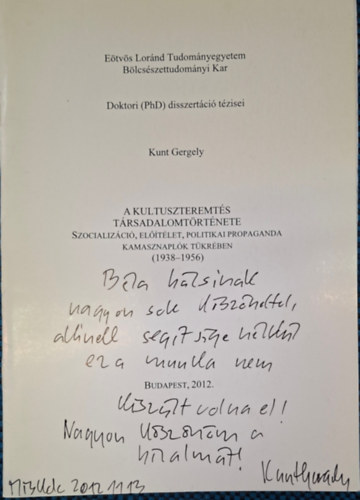 Eötvös Loránd Tudományegyetem
Bölcsészettudományi Kar
Doktori (PhD) disszertáció tézisei
Kunt Gergely
A KULTUSZTEREMTÉS
TÁRSADALOMTÖRTÉNETE
SZOCIALIZÁCIÓ, ELŐÍTÉLET, POLITIKAI PROPAGANDA
KAMASZNAPLÓK TÜKRÉBEN
(1938–1956)
Béla bácsinak
nagyon sok köszönettel,
akinek segítsége nélkül
ez a munka nem
BUDAPEST, 2012.
készült volna el!
Nagyon köszönöm a
bizalmát!
Kunt Gergely
Miskolc 2012 11 13